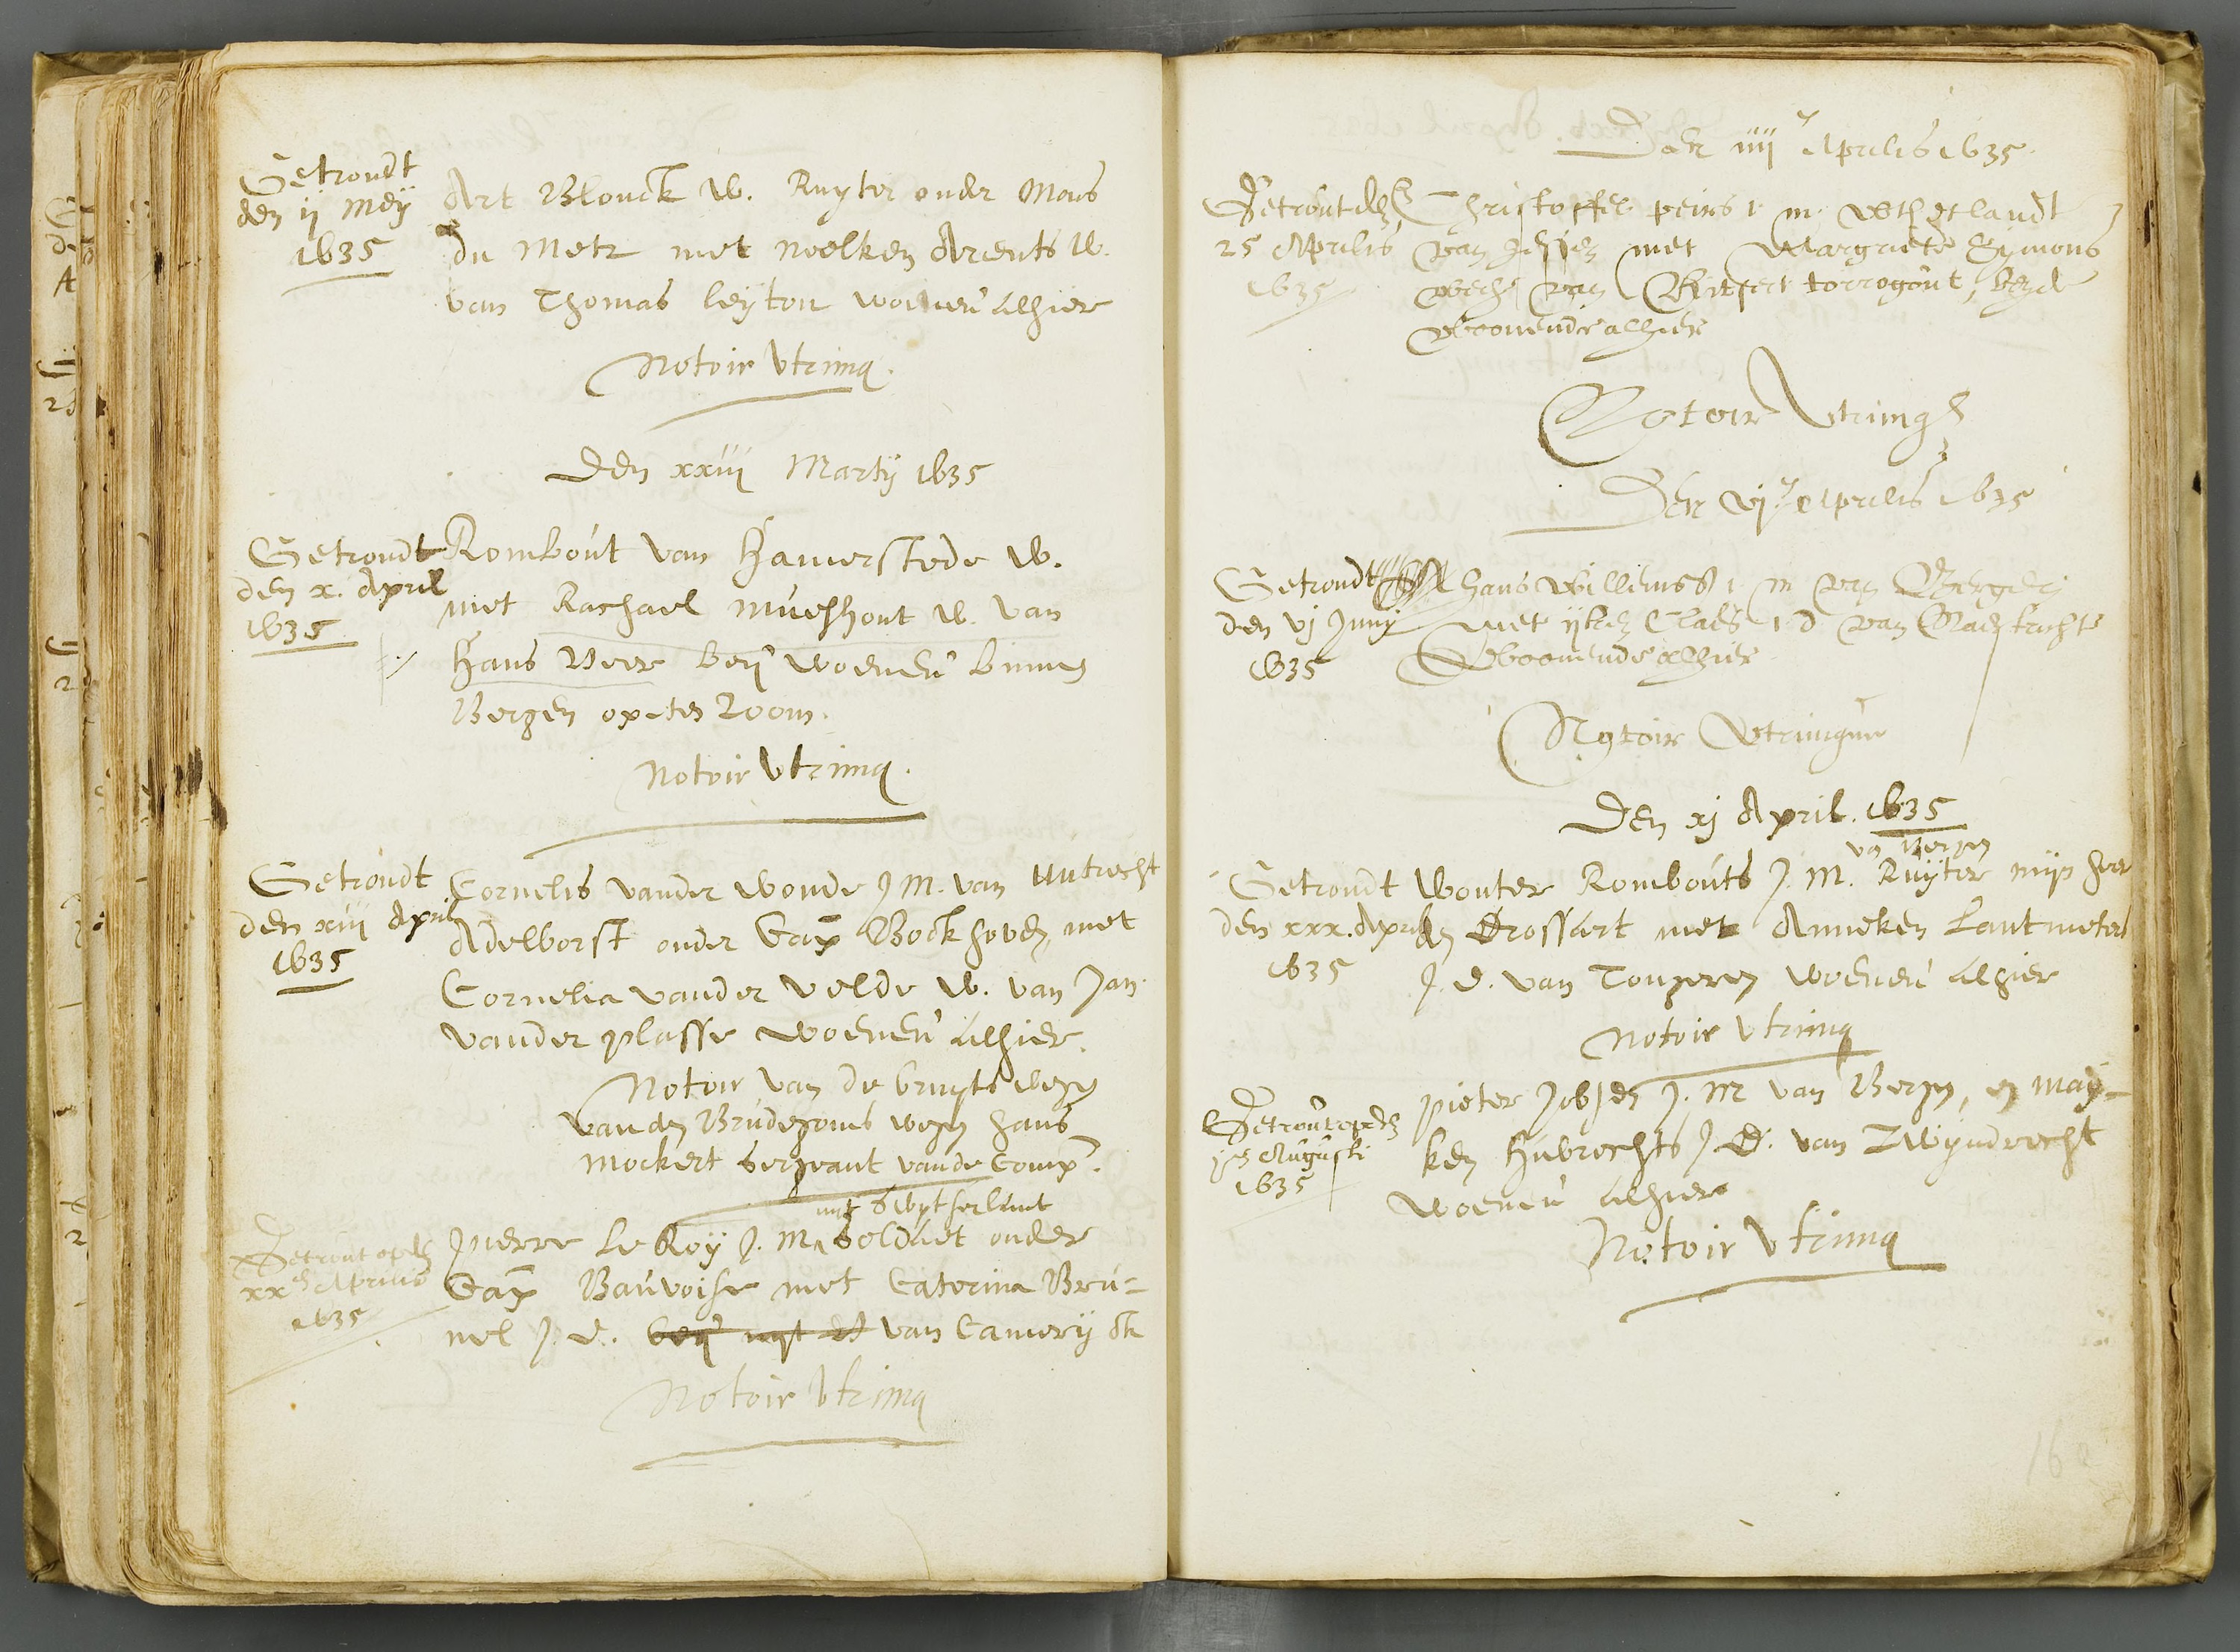 Getroudt
den ij Meij
1635
Art Blonck W. Ruyter onder Mons
du Metz met Neelken Arents W.
van Thomas Leyton woenen alhier
Notoir Utrimq.
Den xxiij Martij 1635
Getroudt
den x. April
1635
Rombout van Hamerstede W.
met Rachael Mueshout W. van
Hans Veer beij woenen binnen
Bergen opten Zoom.
Notoir Utrimq.
Getroudt
den xvij April
1635
Cornelis vander Wonde J M. van Uutrecht
Adelborst onder Cap Bockhoven, met
Cornelia vander Velde W. van Jan
vander Plasse woenen alhier.
Notoir van de bruyts wegen
vanden Brudegoms wegen Hans
Mockert Sergeant vande Comp.
Getrout opden
xxen Aprilis
1635
uut Swytserlant
Pierre Le Roy J. M. Soldaet onder
Cap Bauvoise met Caterina Bru=
nel J. D. van Cameryck
Notoir Utrimq
Den iiij Aprilis 1635
Getrout den
25 Aprilis
1635
Christoffel peirs j. m. wth
van met Margriete Symons
wede van torrogout, beyde
Woonende alhier
Notoir Utrimq
Den vj Aprilis 1635
Getroudt
den vj Junij
1635
hans Willemss j m van Bergen
met Claes j d van Maestricht
Woonende alhier
Notoir Utrimque
Den xj April. 1635
van Bergen
Getroudt
den xxx. April
1635
Wouter Rombouts J. M. Ruyter mijn heer
den Drossart met Anneken Lantmeters
J. D. van Tongeren woenen alhier
Notoir Utrimq
Getrout opden
Augusti
1635
Pieter Jobsen J. M van Bergen, en May-
ken Hubrechts J. D. van Zwyndrecht
woenen alhier
Notoir Utrimq